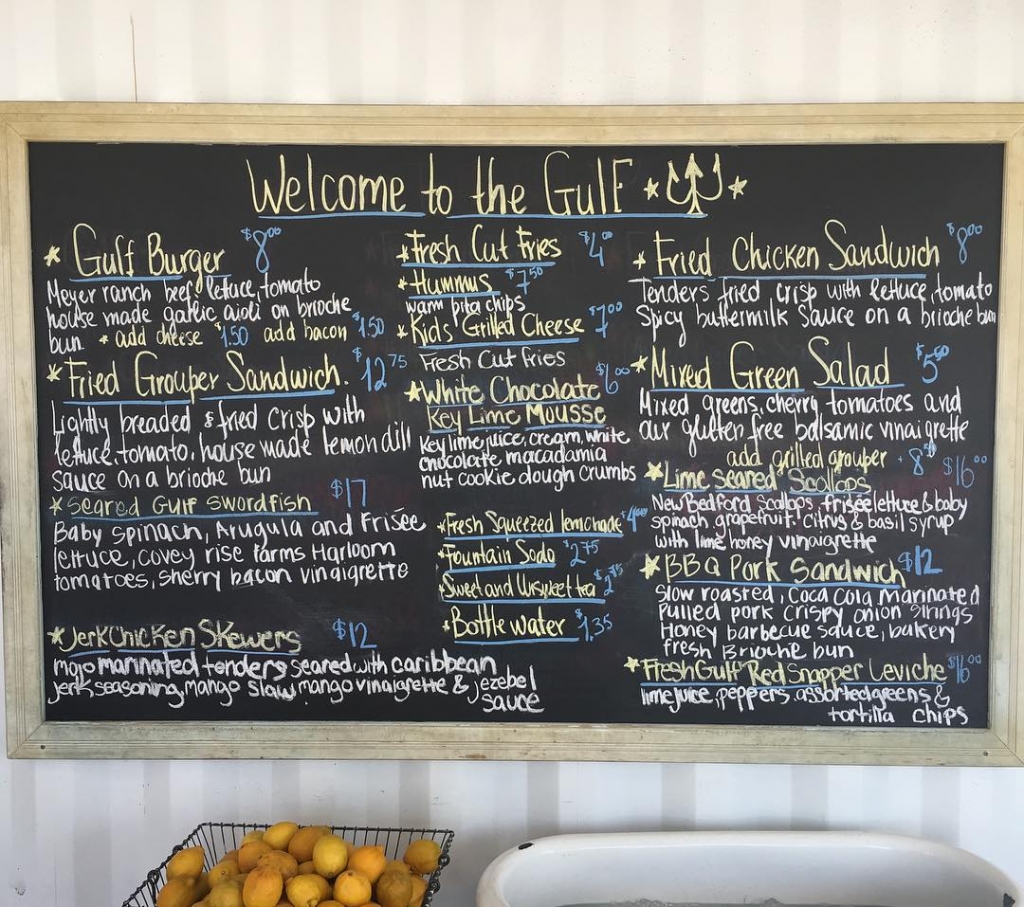 Welcome to the Gulf
Gulf Burger $8.00
Meyer ranch beef, lettuce, tomato
house made garlic aioli on brioche
bun * add cheese $1.50 add bacon $1.50
Fried Grouper Sandwich. $12.75
Lightly breaded & fried crisp with
lettuce, tomato, house made lemon dill
sauce on a brioche bun
Seared Gulf Swordfish $17
Baby spinach, Arugula and Frisée
lettuce, covey rise farms Harloom
tomatoes, sherry bacon vinaigrette
Jerk Chicken Skewers $12
mojo marinated tenders seared with caribbean
jerk seasoning, mango slaw, mango vinaigrette & jezebel
sauce
Fresh Cut Fries $4.00
Hummus $7.50
warm pita chips
Kids Grilled Cheese $7.00
Fresh Cut fries
White Chocolate $6.00
Key Lime Mousse
Key lime juice, cream, white
chocolate macadamia
nut cookie dough crumbs
Fresh Squeezed lemonade $4.00
Fountain Soda $2.75
Sweet and Unsweet tea
Bottle water $1.35
Fried Chicken Sandwich $8.00
Tenders fried crisp with lettuce, tomato
Spicy buttermilk sauce on a brioche bun
Mixed Green Salad $5.00
Mixed greens, cherry tomatoes and
our gluten free balsamic vinaigrette
add grilled grouper
Lime Seared Scallops $16.00
New Bedford Scallops, frisée lettuce & baby
spinach, grapefruit. Citrus & basil syrup
with lime honey vinaigrette
BBQ Pork Sandwich $12
Slow roasted, Coca Cola Marinated
Pulled pork crispy onion strings
Honey barbecue sauce, bakery
fresh Brioche bun
Fresh Gulf Red Snapper Leviche $16.00
lime juice, peppers, assorted greens &
tortilla chips